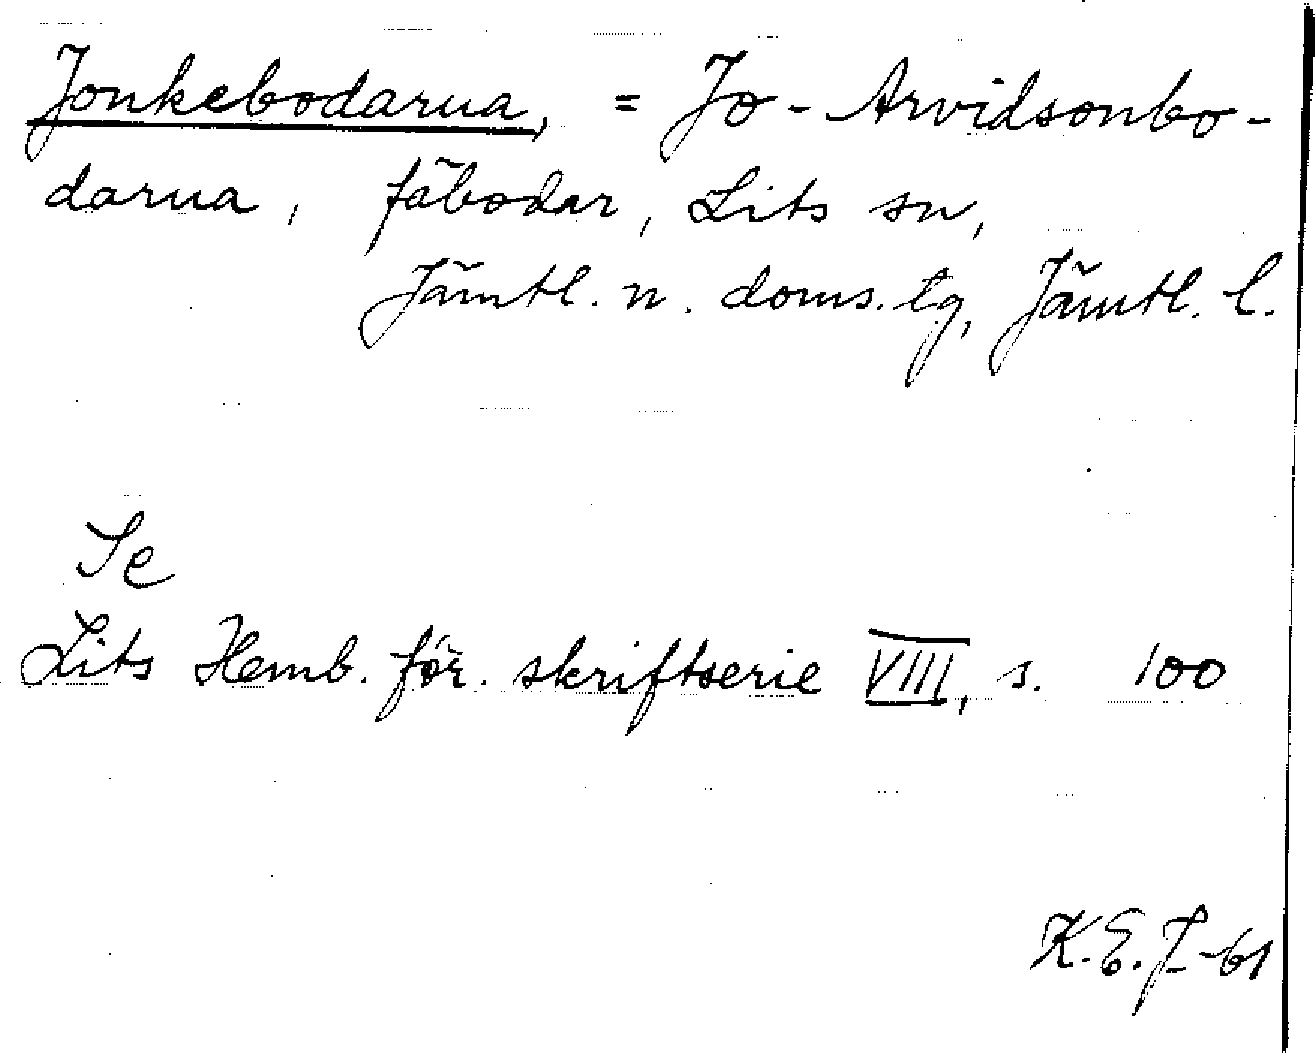 Jonkebodarna, = Jo-Arvidsonbo-
darna, fäbodar, Lits sn,
Jämtl. n. doms. lg, Jämtl. l.
Se
Lits Hemb. för. skriftserie VIII, s. 100
K.E.J-61